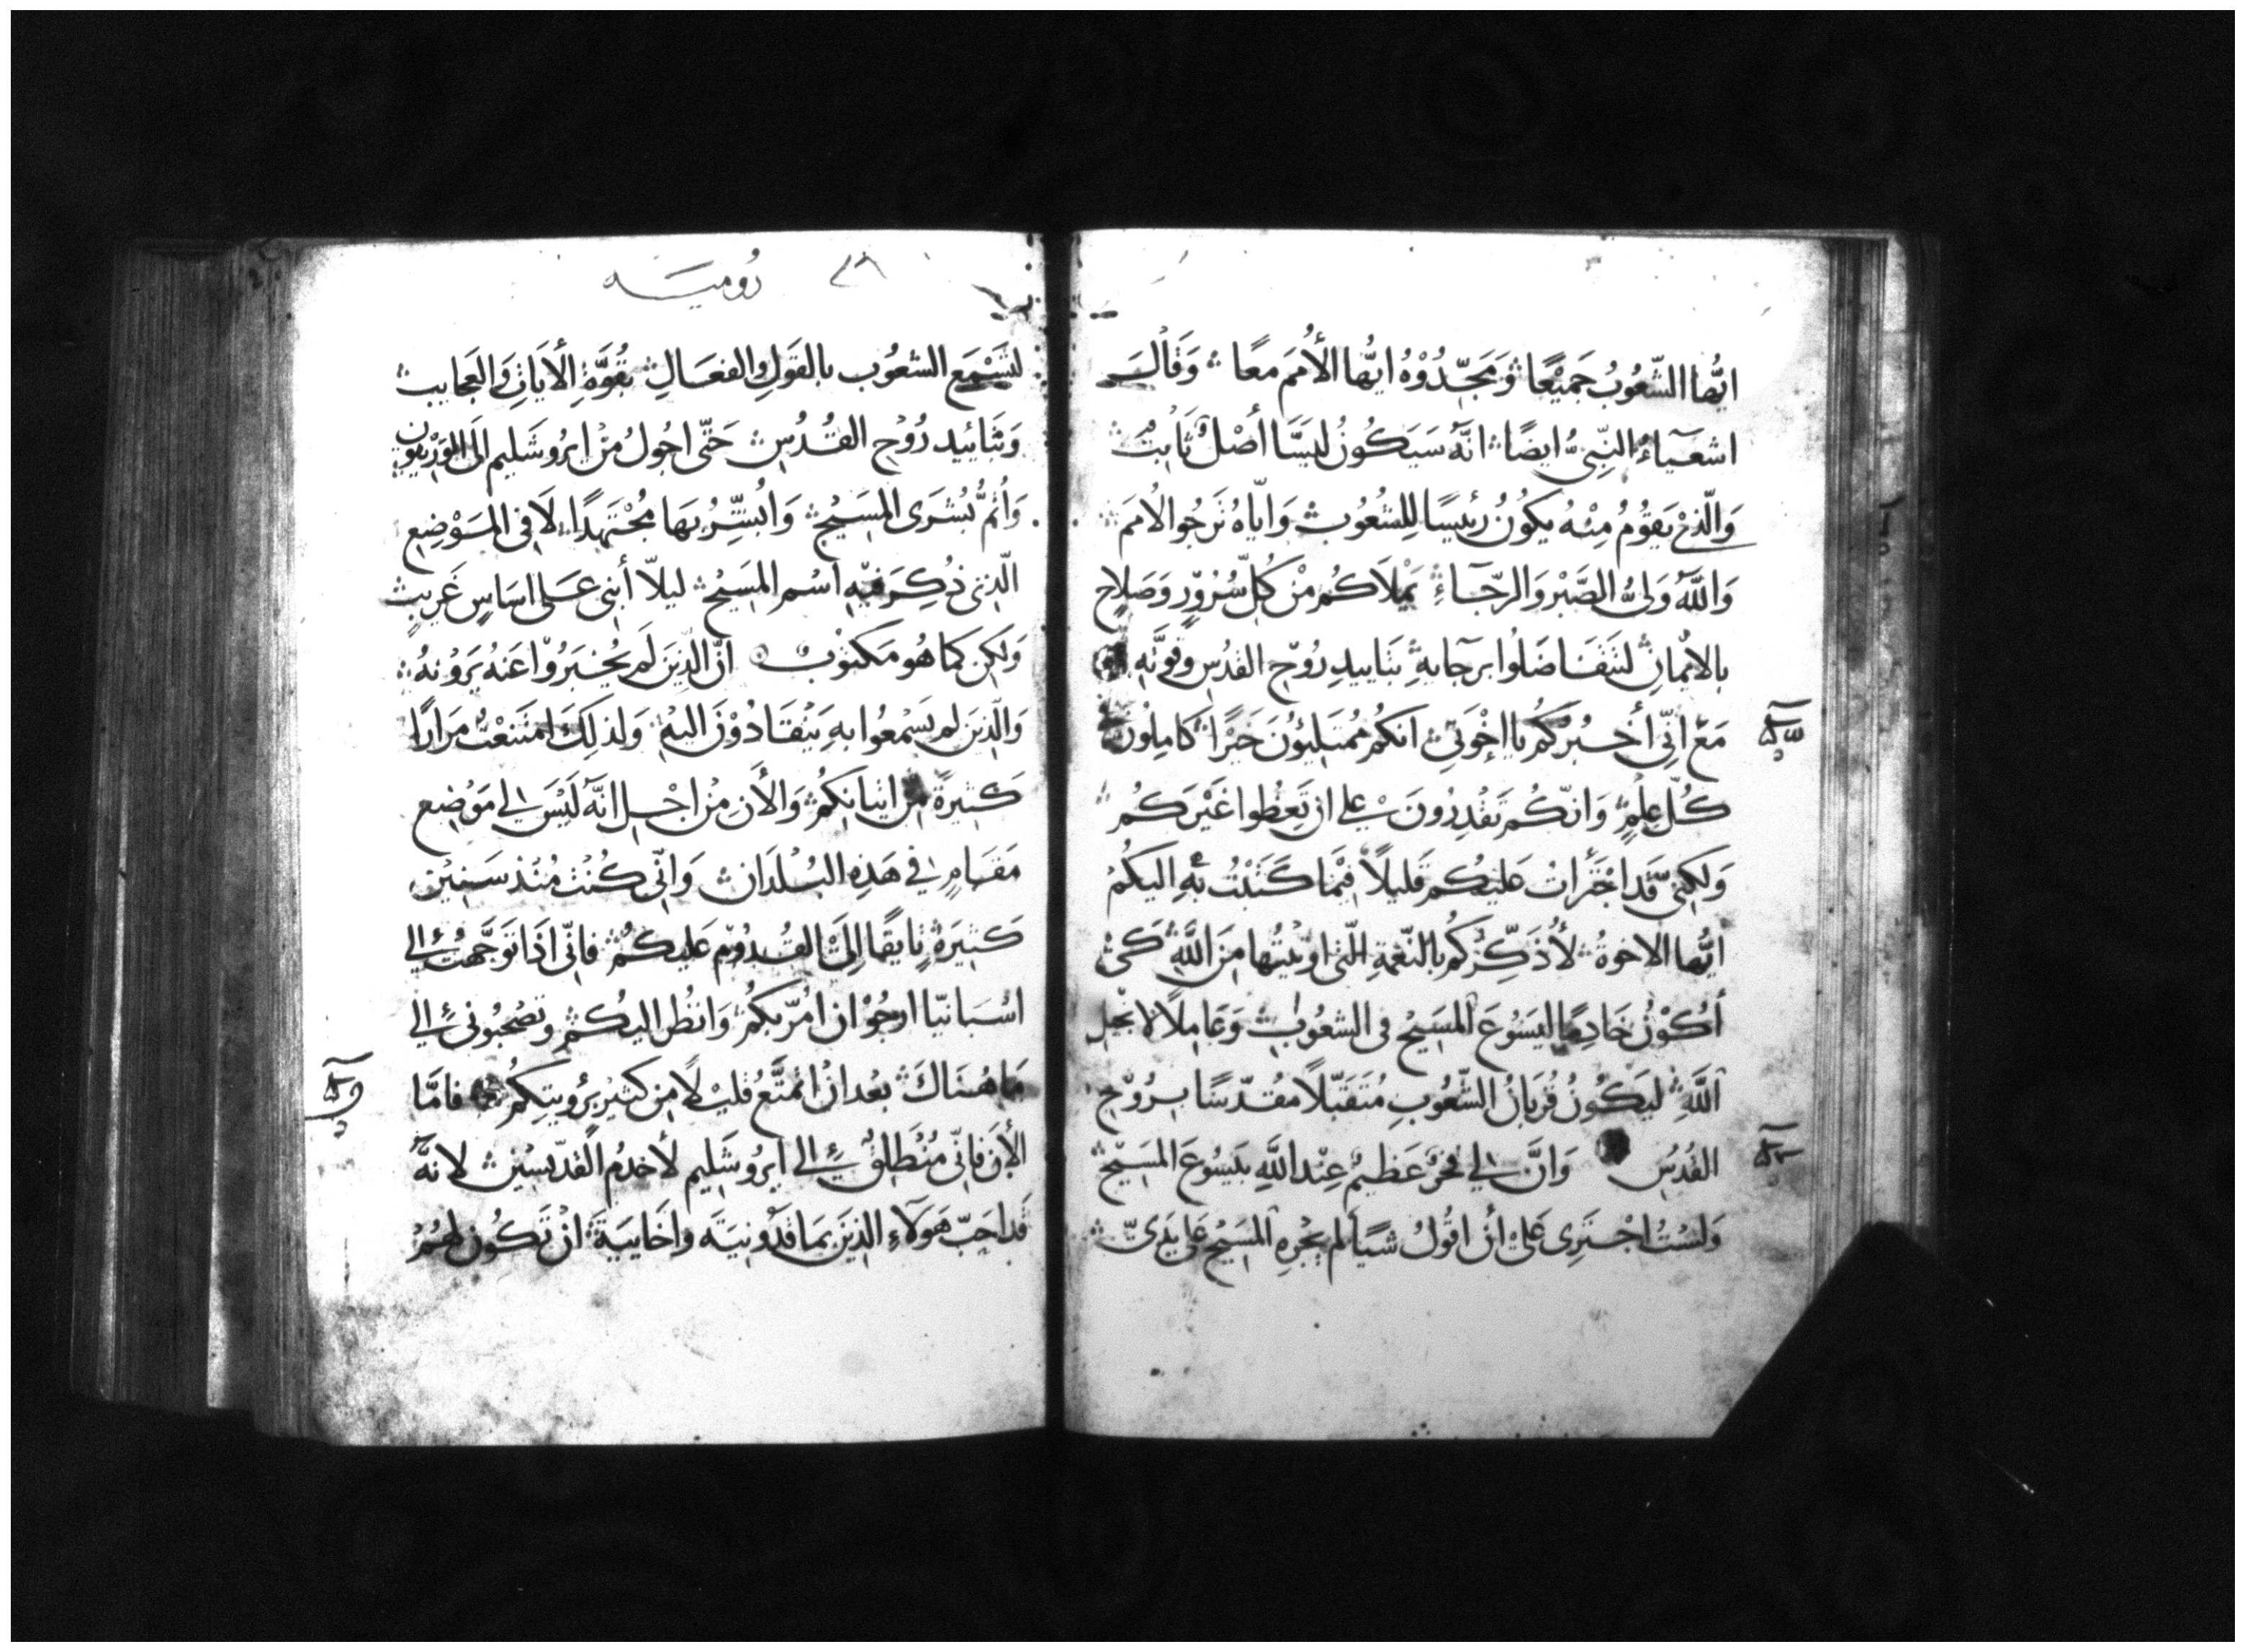 ايُّها الشّعُوبُ جَمِيْعًا وَمَجِّدُوْهُ ايُّها الأُمَم معًا وَقَالَ
اشعيَآءُ النّبِىُّ ايضًا انّهُ سَيَكُونُ لِيَسَّا أصْلٌ ثَابِتٌ
وَالّذِىْ يَقُوُمُ مِنْهُ يكُونُ رئيسًا لِلشُعُوُبِ وَايّاهُ تَرجُوا الأمَم
وَاللَّهُ وَلىُّ الصَّبْرِ وَالرّجَاءِ يَمْلَاكُم مِنْ كُلِّ سُرُوْرٍ وَصَلاحٍ
بالايْمانِ لتَتفَاضَلُوا برجَايهِ بتَاييدِ رُوْحِ القدُسِ وقوَّتِهِ
مَعَ انِّى أخبُركُم يا اخْوَتِى انكُم مُمتَلِئيُونَ خَيْرًا كَامِلُونَ
كُلِّ عِلْمٍ وَانّكُم تَقْدِرُونَ على ان تَعِظُوا غَيْرَكُم
وَلكِنّى قَد اجْتَرَأتُ عَليْكُم قَليْلاً فِيْمَا كَتَبْتُ بهِ اليكُمْ
ايُّها الاخوةُ لأُذَكِّرَكُم بالنّعْمةِ الّتى اوْتيْتُها مِنَ اللَّهِ كَىْ
أكُوْنُ خَادِمًا ليَسُوُعَ المَسِيْحِ فى الشعُوُبِ وَعَامِلًا لانجْيلِ
اللَّهِ ليَكُونُ قُربَانُ الشّعُوُبِ مُتَقَبّلاً مُقدّسًا برُوْحِ
القُدُسِ وَانَّ لى فخرٌ عَظيمٌ عِنْد اللَّهِ بيَسُوُعَ المَسِيْحِ
وَلسْتُ اجْتَرِى عَلىْ أنْ اقُولُ شيًا لم يُجْرِهِ المَسِيْحُ عَلى يَدَىّ
رُوميَه
لتَسْمَع الشعُوُب بالقَولِ والفعَالِ بقُوَّةِ الأيَاتِ وَالعَجَايبِ
وَبتَائيدِ رُوْحِ القُدُسِ حَتّى اجُولُ مِنْ ايرُوشَليم الَى الوَرِيْقون
وَأُتمُّ بُشْرَى المَسِيْحِ وَابُشّرُ بهَا مُجْتَهدًا لَا فى المَوْضِعِ
الّذِى ذُكِرَ فيْهِ اسْم المَسِيْحِ ليلاّ أبنى عَلى اسَاسٍ غَرِيبٍ
وَلكِن كمَا هُو مَكتوُبٌ انّ الّذِيَن لَم يُخبَرُوْا عَنهُ يَرَوْنهُ
وَالّذِينَ لم يَسْمعُوا بهِ يَنْقَادُوْنَ اليْهِ وَلذلِكَ امتَنعْتُ مرَارًا
كَثِيرَةً مِن اتيانكُم وَالأَنِ مِنْ اجْلِ انّهُ لَيْسَ لى مَوْضِع
مَقَامٍ فى هَذِهِ البُلدَانِ وَانّى كُنْتُ مُنْذ سَنِيْنَ
كَثيرَةٍ تَايقًا إلىَ القُدُوْمِ عَليكُم فانّى اذَا توَجّهْتُ الى
اسْبَانيّا ارجُوْ ان امُرّ بكُم وَانظُر اليكُم وتصْحَبُونى الى
مَا هُنَاكَ بعْد انْ اتمتَّع قليْلاً مِن كثيْرٍ برُويتِكُم فامّا
الأنَ فانّى مُنْطَلِقٌ الى ايرُوشَلِيم لأخدمُ القدّيسِيْنَ لانهُّ
قد احَبّ هَولَاءِ الذِيْنَ بمَاقدُونيَته واخَاييَةَ انْ تَكُون لهُمْ